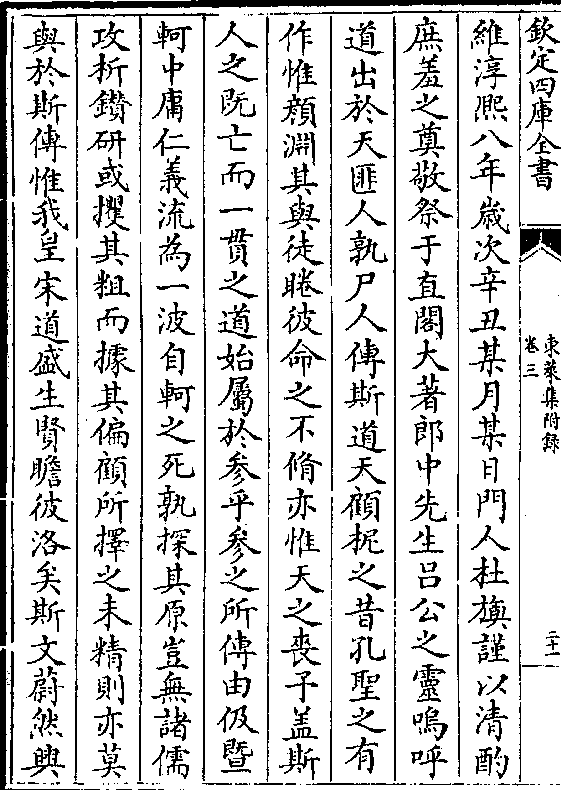 欽定四庫全書
東萊集附録
卷三
二十一
維淳熙八年歲次辛丑某月某日門人杜旟謹以清酌
庶羞之奠敬祭于直閣大著郎中先生吕公之靈嗚呼
道出於天匪人孰尸人傳斯道天顧柅之昔孔聖之有
作惟顔淵其與徒睠彼命之不脩亦惟天之喪予盖斯
人之既亡而一貫之道始屬於參乎參之所傳由伋暨
軻中庸仁義流為一波自軻之死孰探其原豈無諸儒
攻析鑚研或攖其粗而據其偏顧所擇之未精則亦莫
與於斯傳惟我皇宋道盛生賢瞻彼洛矣斯文蔚然興